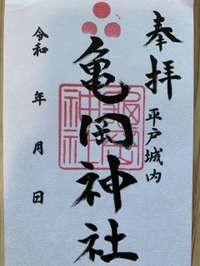 奉拝
平戸城内
亀岡神社
令和 年 月 日